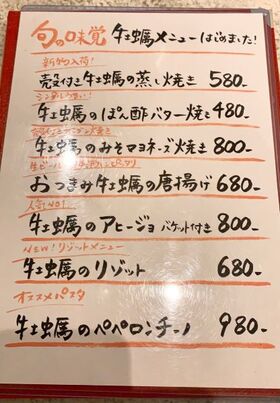 旬の味覚 牡蠣メニューはじめました!
新物入荷!
殻付き牡蠣の蒸し焼き 580-
シンプルうまい!
牡蠣のぽん酢バター焼き 480-
牡蠣のみそマヨネーズ焼き 800-
おつまみ牡蠣の唐揚げ 680-
人気NO1
牡蠣のアヒージョ バケット付き 800-
NEW!リゾットメニュー
牡蠣のリゾット 680-
オススメパスタ
牡蠣のペペロンチーノ 980-